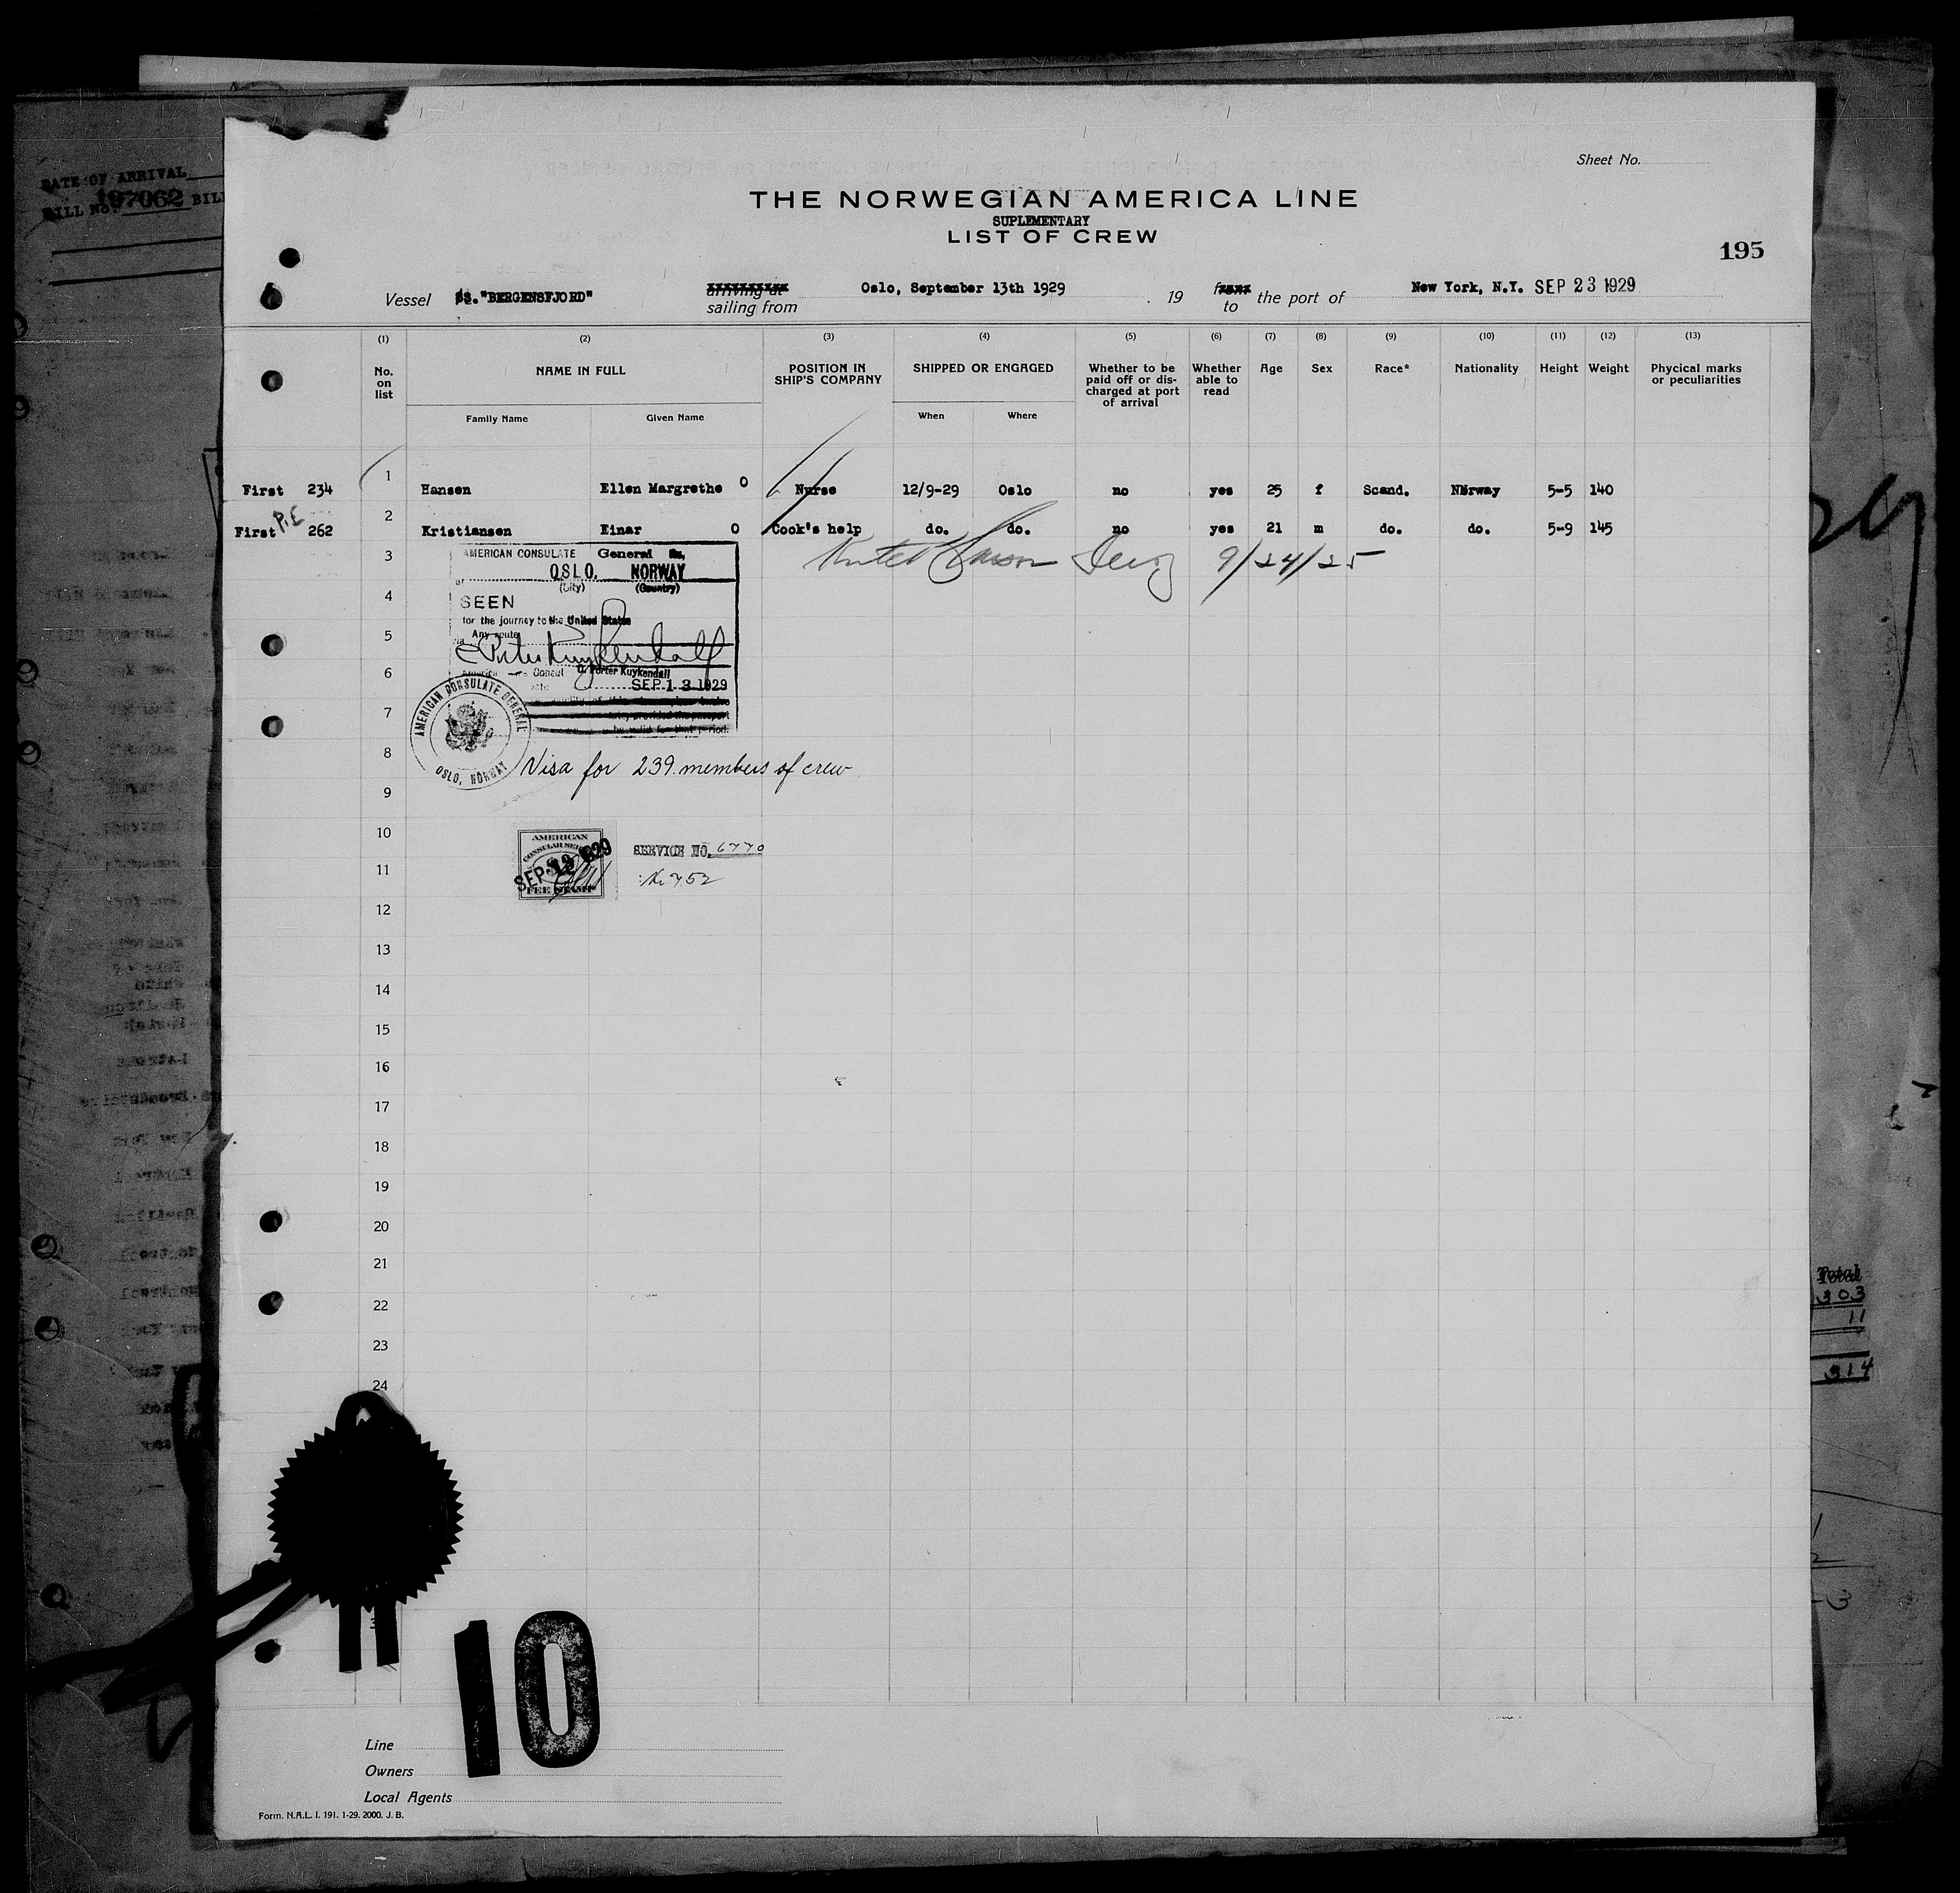 DATE OF ARRIVAL
BILL No. 197062 BILL
Sheet No.
THE NORWEGIAN AMERICA LINE
SUPLEMENTARY
LIST OF CREW
195
Vessel SS. "BERGENSFJORD" arriving at Oslo, September 13th 1929 . 19 from New York, N.Y. SEP 23 1929
sailing from to the port of
(1) (2) (3) (4) (5) (6) (7) (8) (9) (10) (11) (12) (13)
No. on list NAME IN FULL POSITION IN SHIP'S COMPANY SHIPPED OR ENGAGED Whether to be paid off or dis-charged at port of arrival Whether able to read Age Sex Race* Nationality Height Weight Phycical marks or peculiarities
Family Name Given Name When Where
First 234 1 Hansen Ellen Margrethe O Nurse 12/9-29 Oslo no yes 25 f Scand. Norway 5-5 140
First P.E 262 2 Kristiansen Einar O Cook's help do. do. no yes 21 m do. do. 5-9 145
3
9/24/25
AMERICAN CONSULATE General
at OSLO, NORWAY
(City) (Country)
4
SEEN
for the journey to the United States
5
Any route
6
Consul C. Porter Kuykendall
SEP 13 1929
7
AMERICAN CONSULATE GENERAL
OSLO, NORWAY
8
Visa for 239 members of crew
9
10
AMERICAN
CONSULAR SERVICE
FEE STAMP
SERVICE NO. 6770
11
12
13
14
15
16
17
18
19
20
21
22
23
24
Total
303
11
314
10
Line
Owners
Local Agents
Form. N.A.L. I. 191. 1-29. 2000. J. B.